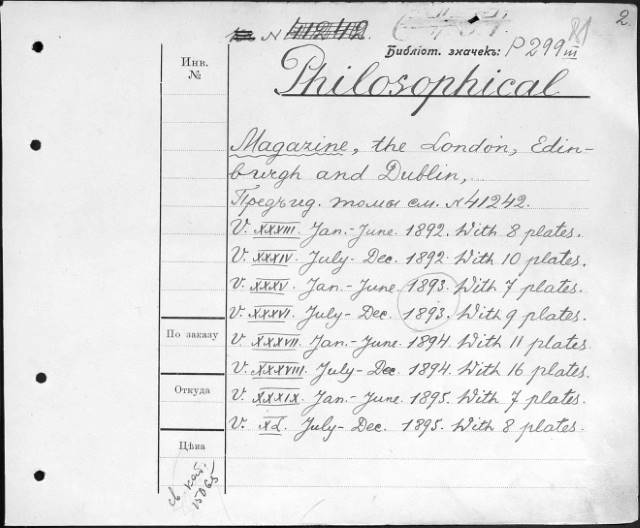 2
N 41242
Библіот. значекъ: P 299 III
Инв.
№
Philosophical
Magazine, the London, Edin-
burgh and Dublin,
Предъид. томы см. N 41242.
V. XXXIII. Jan.-June. 1892. With 8 plates.
V. XXXIV. July-Dec. 1892. With 10 plates.
V. XXXV. Jan.-June 1893. With 7 plates.
V. XXXVI. July-Dec. 1893. With 9 plates.
V. XXXVII. Jan.-June. 1894. With 11 plates.
V. XXXVIII. July-Dec. 1894. With 16 plates.
V. XXXIX. Jan.-June. 1895. With 7 plates.
V. XL. July-Dec. 1895. With 8 plates.
По заказу
Откуда
Цѣна
св. кат.
15065